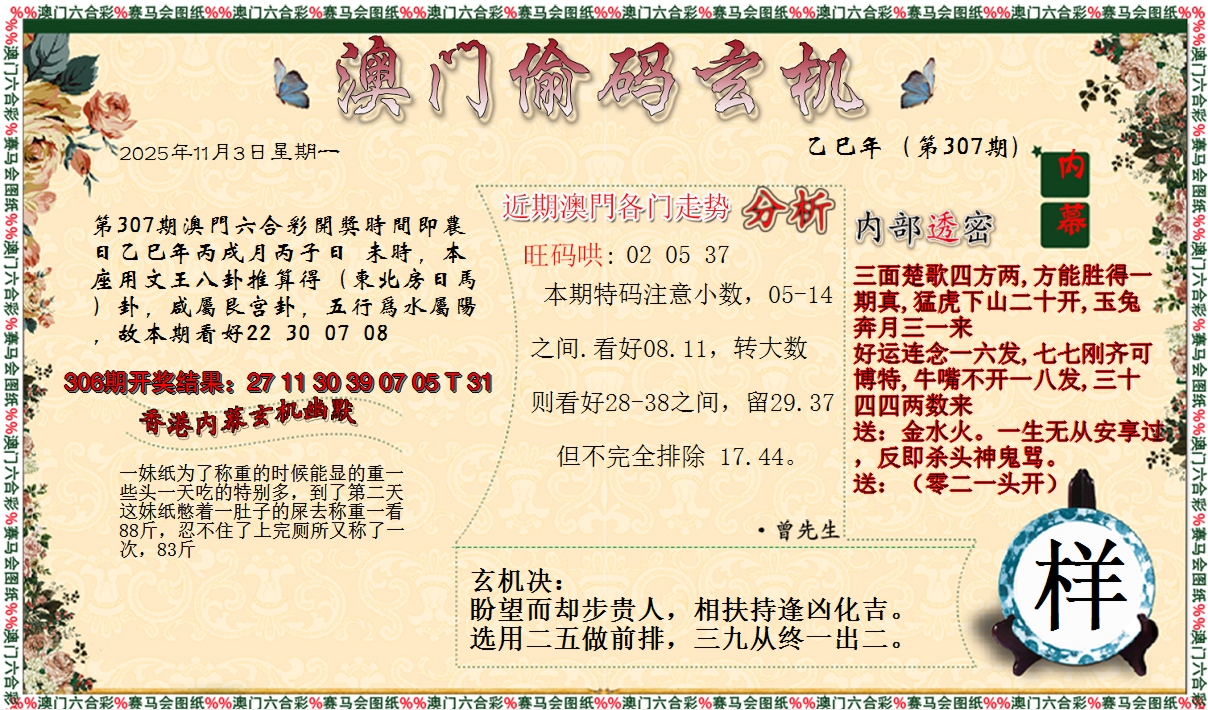 %%澳门六合彩%赛马会图纸%%澳门六合彩%赛马会图纸%%澳门六合彩%赛马会图纸%%澳门六合彩%赛马会图纸%%澳门六合彩%赛马会图纸%%澳门六合彩%赛马会图纸%%
澳门偷码玄机
2025年11月3日星期一
乙巳年（第307期）
内
幕
第307期澳門六合彩開獎時間即農
日乙巳年丙戌月丙子日 未時，本
座用文王八卦推算得（東北房日馬
）卦，咸屬艮宮卦，五行爲水屬陽
，故本期看好22 30 07 08
306期开奖结果：27 11 30 39 07 05 T 31
香港内幕玄机幽默
一妹纸为了称重的时候能显的重一
些头一天吃的特别多，到了第二天
这妹纸憋着一肚子的屎去称重一看
88斤，忍不住了上完厕所又称了一
次，83斤
近期澳門各门走势 分析
旺码哄: 02 05 37
本期特码注意小数，05-14
之间.看好08.11，转大数
则看好28-38之间，留29.37
但不完全排除 17.44。
·曾先生
内部透密
三面楚歌四方两,方能胜得一
期真,猛虎下山二十开,玉兔
奔月三一来
好运连念一六发,七七刚齐可
博特,牛嘴不开一八发,三十
四四两数来
送：金水火。一生无从安享过
，反即杀头神鬼骂。
送：（零二一头开）
玄机决：
盼望而却步贵人，相扶持逢凶化吉。
选用二五做前排，三九从终一出二。
样
%%澳门六合彩%赛马会图纸%%澳门六合彩%赛马会图纸%%澳门六合彩%赛马会图纸%%澳门六合彩%赛马会图纸%%澳门六合彩%赛马会图纸%%澳门六合彩%赛马会图纸%%